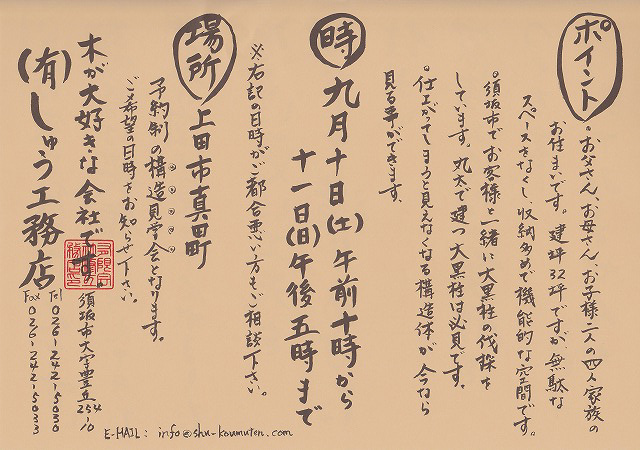 ポイント
。お父さん、お母さん、お子様二人の四人家族の
お住まいです。建坪32坪ですが無駄な
スペースをなくし、収納多めで機能的な空間です。
。須坂市でお客様と一緒に大黒柱の伐採を
しています。丸太で建つ大黒柱は必見です。
。仕上がってしまうと見えなくなる構造体が今なら
見る事ができます。
時 九月十日(土)午前十時から
十一日(日)午後五時まで
※右記の日時がご都合悪い方もご相談下さい。
場所 上田市真田町
予約制の構造見学会となります。
ご希望の日時をお知らせ下さい。
木が大好きな会社です。
(有)しゅう工務店
須坂市大字豊丘254-10
Tel 026-242-5030
Fax 026-242-5033
E-MAIL: info@shu-koumuten.com